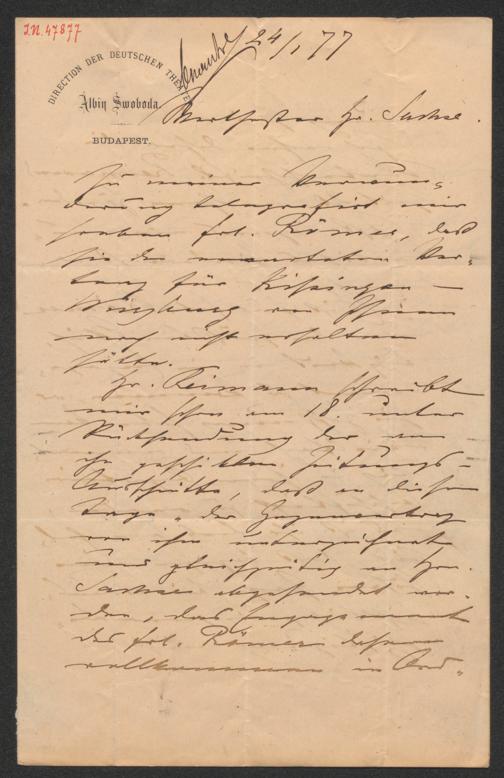 I.N. 47877
DIRECTION DER DEUTSCHEN THEATER
Albin Swoboda
BUDAPEST.
24/1 77
Werthester Hr. Sachse.
Zu meiner Verwun-
derung telegrafirt mir
soeben Frl. Römer, daß
sie den erwarteten Ver-
trag für Kissingen –
Würzburg von Ihnen
noch nicht erhalten
hätte.
Hr. Reimann schreibt
mir schon am 18. unter
Rücksendung der an
ihn geschickten Zeitungs-
Ausschnitte, daß an diesem
Tage "der Gegenvertrag
von ihm unterzeichnet
und gleichzeitig an Hrn.
Sachse abgesendet wor-
den, das Engagement
des Frl. Römer daher
vollkommen in Ord-